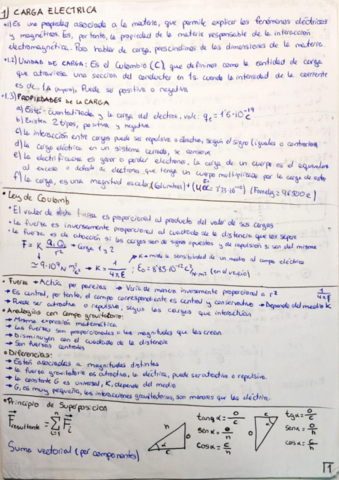 1 CARGA ELECTRICA
•1) Es una propiedad asociada a la materia, que permite explicar los fenómenos eléctricos
y magnéticos. Es, por tanto, la propiedad de la materia responsable de la interacción
electromagnética. Para hablar de carga, prescindimos de las dimensiones de la materia.
•1.2) UNIDAD DE CARGA: Es el Culombio (C), que definimos como la cantidad de carga
que atraviesa una sección del conductor en 1s cuando la intensidad de la corriente
es de 1 A. Puede ser positiva o negativa
•1.3) PROPIEDADES DE LA CARGA
a) Está cuantificada y la carga del electrón, vale: 1'6·10⁻¹⁹ C
b) Existen 2 tipos, positiva y negativa
c) La interacción entre cargas puede ser repulsiva o atractiva, según el signo (iguales o contrarios)
d) La carga eléctrica en un sistema cerrado, se conserva
e) La electrificación es ganar o perder electrones. La carga de un cuerpo es el equivalente
al exceso o defecto de electrones que tenga un cuerpo multiplicado por la carga de este
f) La carga, es una magnitud escalar (Culombios)
• Ley de Coulomb
• El valor de dicha fuerza es proporcional al producto del valor de sus cargas
• La fuerza es inversamente proporcional al cuadrado de la distancia que las separa
• La fuerza es de atracción si las cargas son de signos opuestos y de repulsión si son del mismo
F = K Q₁·Q₂ / r² → Carga 1 y 2
K → mide la sensibilidad de un medio al campo eléctrico
≃ 9·10⁹ N m²/C² ← K = 1/4πε ; ε₀ = 8'85·10⁻¹² C²/N m² (en el vacío)
• Fuerza - Actúa por parejas - Varía de manera inversamente proporcional a r²
- Es central, por tanto, el campo correspondiente es central y conservativo - Depende del medio K 1/4πε
- Puede ser atractiva o repulsiva, según las cargas que interactúan
• Analogías con campo gravitatorio:
→ Misma expresión matemática
→ Las fuerzas son proporcionales a las magnitudes que las crean
→ Disminuyen con el cuadrado de la distancia
→ Son fuerzas centrales
• Diferencias:
→ Están asociadas a magnitudes distintas
→ La fuerza gravitatoria es atractiva, la eléctrica, puede ser atractiva o repulsiva.
→ La constante G es universal, K, depende del medio
→ G, es muy pequeña, las interacciones gravitatorias, son menores que las eléctricas
• Principio de Superposición
F resultante = Σ Fᵢ
n
i=1
Suma vectorial (por componentes)
n
o
α
c
tang α = o/c
sen α = o/n
cos α = c/n
tg α = o/c
sen α = o/n
cos α = c/n
1